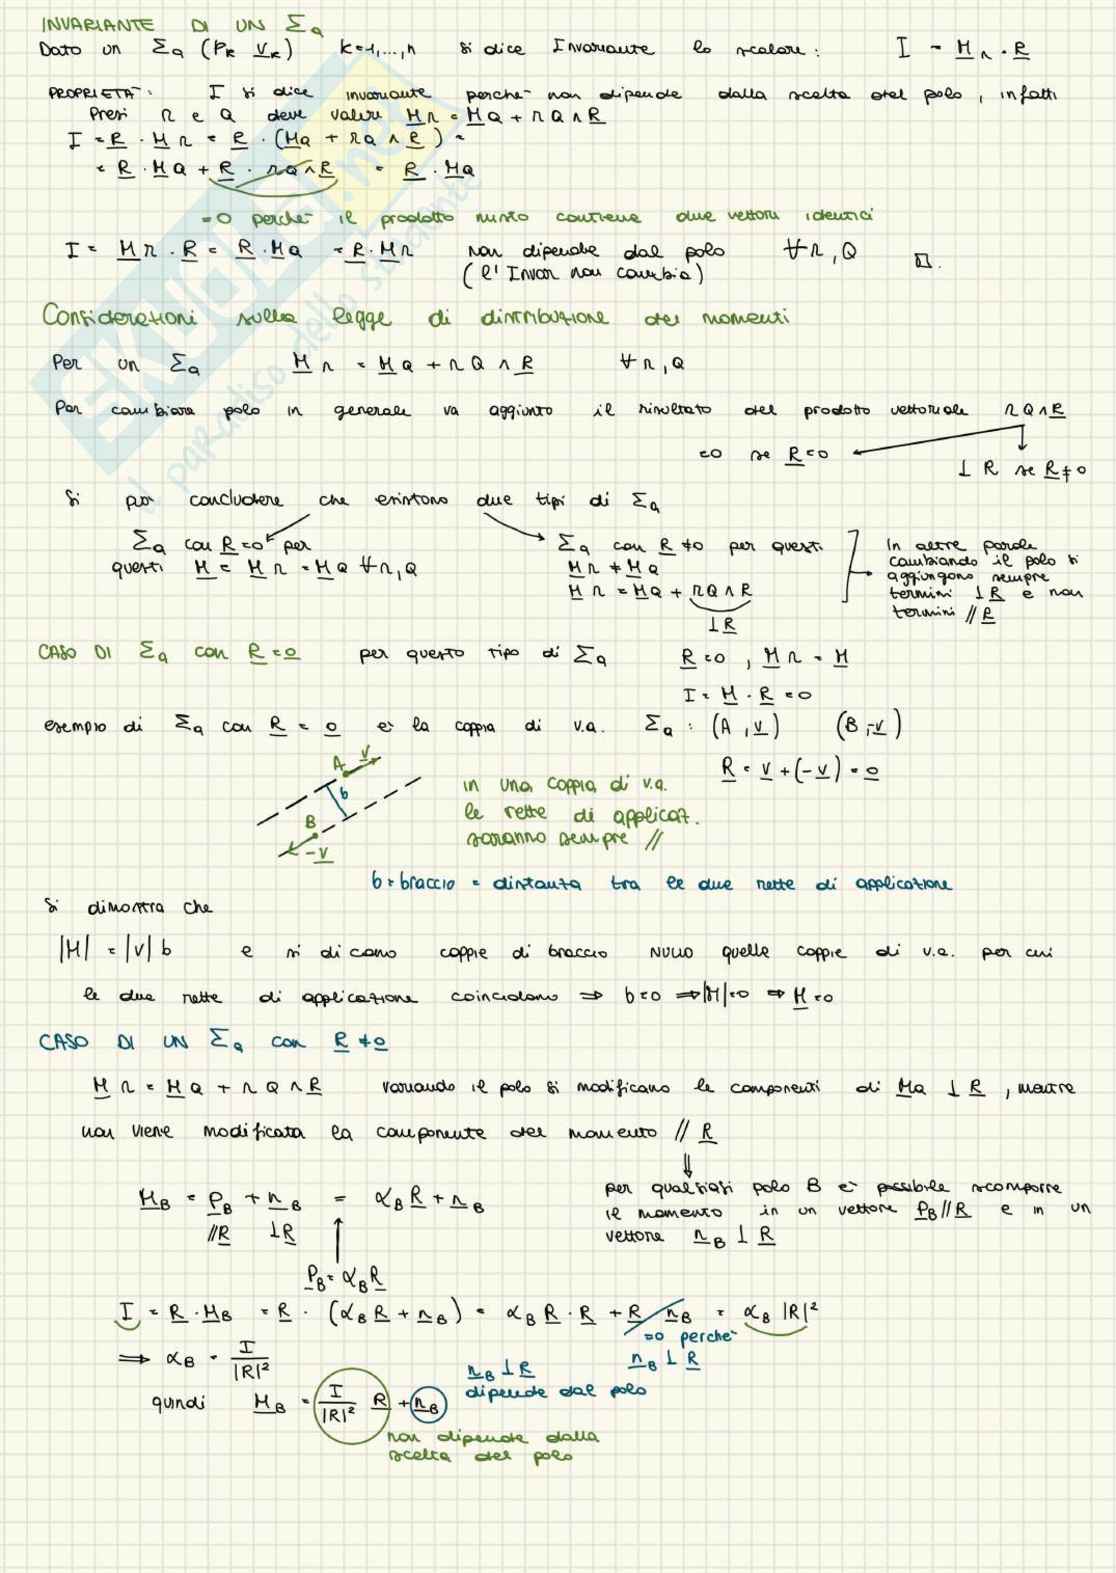 INVARIANTE DI UN Σa
Dato un Σa (Pk Vk) k=1,...,n si dice Invariante lo scalare: I = Mr · R
PROPRIETÀ: I si dice invariante perché non dipende dalla scelta del polo, infatti
Presi r e Q deve valere Mr = MQ + rQ ∧ R
I = R · Mr = R · (MQ + rQ ∧ R) =
= R · MQ + R · rQ∧R = R · MQ
=0 perché il prodotto misto contiene due vettori identici
I = Mr · R = R · MQ = R · Mr non dipende dal polo ∀r,Q
(l'Invar non cambia)
Considerazioni sulla legge di distribuzione dei momenti
Per un Σa Mr = MQ + rQ ∧ R ∀r,Q
Per cambiare polo in generale va aggiunto il risultato del prodotto vettoriale rQ∧R
=0 se R=0
⊥ R se R≠0
Si può concludere che esistono due tipi di Σa
Σa con R=0 per
questi M = Mr = MQ ∀r,Q
Σa con R ≠0 per questi
Mr ≠ MQ
Mr = MQ + rQ∧R
⊥R
In altre parole
cambiando il polo si
aggiungono sempre
termini ⊥R e non
termini // R
CASO DI Σa con R=0 per questo tipo di Σa R=0 , Mr = M
I = M · R = 0
esempio di Σa con R = 0 è la coppia di v.a. Σa : (A,v) (B,-v)
R = v+(-v) = 0
A v
b
B
-v
in una coppia di v.a.
le rette di applicaz.
saranno sempre //
b=braccio = distanza tra le due rette di applicazione
Si dimostra che
|M| = |v| b e si dicono coppie di braccio NULLO quelle coppie di v.a. per cui
le due rette di applicazione coincidono ⇒ b=0 ⇒|M|=0 ⇒ M=0
CASO DI UN Σa con R ≠0
Mr = MQ + rQ ∧ R variando il polo si modificano le componenti di MQ ⊥ R , mentre
non viene modificata la componente del momento // R
MB = PB + nB = αB R + nB
//R ⊥R
PB = αB R
per qualsiasi polo B è possibile scomporre
il momento in un vettore PB//R e in un
vettore nB ⊥ R
I = R · MB = R · (αB R + nB) = αB R · R + R nB = αB |R|²
=0 perché
nB ⊥ R
⇒ αB = I/|R|²
quindi MB = I/|R|² R + nB
nB ⊥ R
dipende dal polo
non dipende dalla
scelta del polo